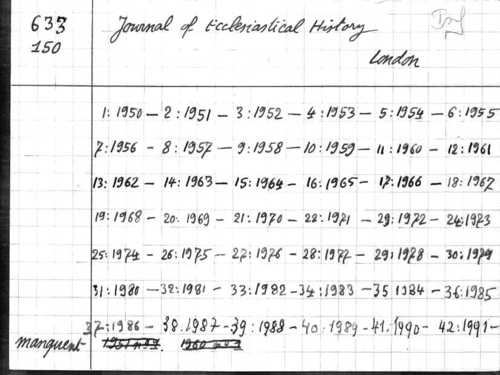 633 Journal of Ecclesiastical History
150
London
1: 1950 – 2: 1951 – 3: 1952 – 4: 1953 – 5: 1954 – 6: 1955
7: 1956 – 8: 1957 – 9: 1958 – 10: 1959 – 11: 1960 – 12: 1961
13: 1962 – 14: 1963 – 15: 1964 – 16: 1965 – 17: 1966 – 18: 1967
19: 1968 – 20: 1969 – 21: 1970 – 22: 1971 – 23: 1972 – 24: 1973
25: 1974 – 26: 1975 – 27: 1976 – 28: 1977 – 29: 1978 – 30: 1979
31: 1980 – 32: 1981 – 33: 1982 – 34: 1983 – 35 1984 – 36: 1985
37: 1986 – 38: 1987 – 39: 1988 – 40: 1989 – 41: 1990 – 42: 1991 –
manquent